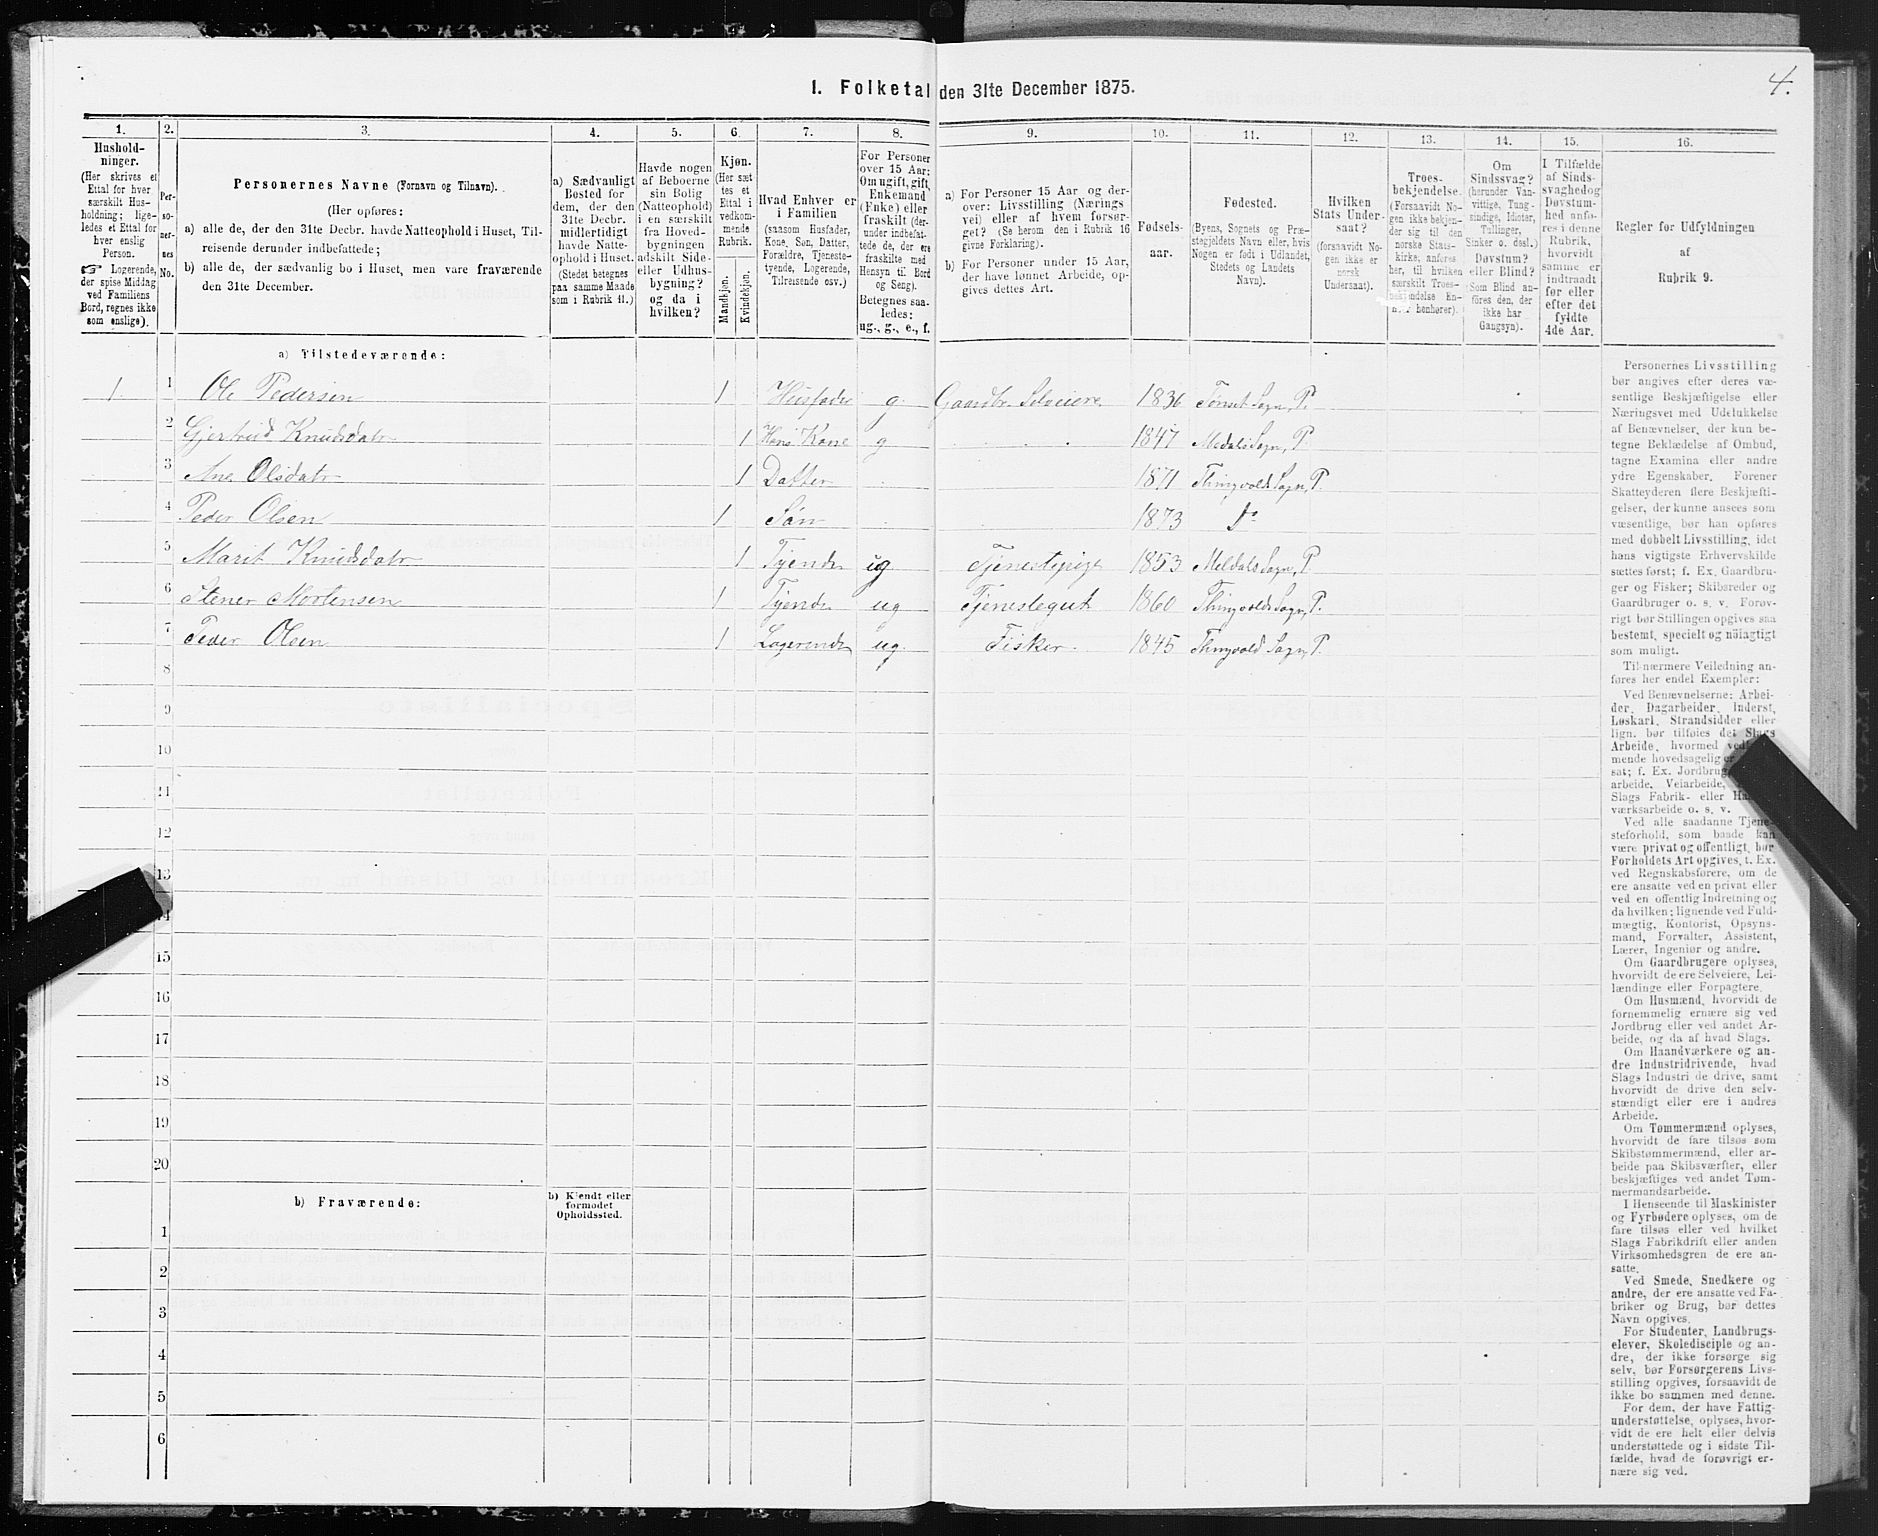 4.
I. Folketal den 31te December 1875.
1. 2. 3. 4. 5. 6. 7. 8. 9. 10. 11. 12. 13. 14. 15. 16.
Hushold-
ninger.
(Her skrives et
Ettal for hver
særskilt Hus-
holdning; lige-
ledes et Ettal for
hver enslig
Person.
☞ Logerende,
der spise Middag
ved Familiens
Bord, regnes ikke
som enslige).
Per-
so-
ner-
nes
No.
Personernes Navne (Fornavn og Tilnavn).
(Her opføres:
a) alle de, der den 31te Decbr. havde Natteophold i Huset, Til-
reisende derunder indbefattede;
b) alle de, der sædvanlig bo i Huset, men vare fraværende
den 31te December.
a) Sædvanligt
Bosted for
dem, der den
31te Decbr.
midlertidigt
havde Natte-
ophold i Huset.
(Stedet betegnes
paa samme Maade
som i Rubrik 11.)
Havde nogen
af Beboerne
sin Bolig
(Natteophold)
i en særskilt
fra Hoved-
bygningen
adskilt Side-
eller Udhus-
bygning?
og da i
hvilken?
Kjøn.
(Her sæt-
tes et
Ettal i
vedkom-
mende
Rubrik.
Mandkjøn.
Kvindekjøn.
Hvad Enhver er
i Familien
(saasom Husfader,
Kone, Søn, Datter,
Forældre, Tjeneste-
tyende, Logerende,
Tilreisende osv.)
For Personer
over 15 Aar:
Om ugift, gift,
Enkemand
(Enke) eller
fraskilt (der-
under indbefat-
tede de, der ere
fraskilte med
Hensyn til Bord
og Seng).
Betegnes saa-
ledes:
ug., g., e., f.
a) For Personer 15 Aar og der-
over: Livsstilling (Nærings
vei) eller af hvem forsør-
get? (Se herom den i Rubrik 16
givne Forklaring).
b) For Personer under 15 Aar,
der have lønnet Arbeide, op-
gives dettes Art.
Fødsels-
aar.
Fødested.
(Byens, Sognets og Præ-
stegjeldets Navn eller, hvis
Nogen er født i Udlandet,
Stedets og Landets
Navn).
Hvilken
Stats Under-
saat?
(forsaavidt No-
gen ikke er
norsk
Undersaat).
Troes-
bekjendelse.
(Forsaavidt No-
gen ikke bekjen-
der sig til den
norske Stats-
kirke, anføres
her, til hvilken
særskilt Troes-
bekjendelse En-
henhører).
Om
Sindssvag?
(herunder Van-
vittige, Tung-
sindige, Idioter,
Tullinger,
Sinker o. desl.)
Døvstum?
eller Blind?
(Som Blind an-
føres den, der
ikke har
Gangsyn).
I Tilfælde
af Sinds-
svaghed og
Døvstum-
hed anfø-
res i denne
Rubrik,
hvorvidt
samme er
indtraadt
før eller
efter det
fyldte
4de Aar.
Regler for Udfyldningen
af
Rubrik 9.
a) Tilstedeværende:
1. 1 Ole Pedersen 1 Husfader g. Gaardbr. Selveiere. 1836 Tønset Sogn, P.
2 Gjertrud Knudsdatr 1 Hans Kone g 1847 Medals Sogn, P.
3 Ane Olsdatr 1 Datter 1871 Thingvolds Sogn, P.
4 Peder Olsen 1 Søn 1873 Do
5 Marit Knudsdatr 1 Tyende ug. Tjenestepige 1853 Meldals Sogn, P
6 Stener Mortensen 1 Tyende ug Tjenestegut 1860 Thingvolds Sogn, P.
7 Peder Olsen 1 Logerende ug. Fisker. 1845 Thingvold Sogn, P.
8
9
10
11
12
13
14
15
16
17
18
19
20
b) Fraværende:
b) Kjendt eller
formodet
Opholdssted.
1
2
3
4
5
6
Personernes Livsstilling
bør angives efter deres væ-
sentlige Beskjæftigelse eller
Næringsvei med Udelukkelse
af Benævnelser, der kun be-
tegne Beklædelse af Ombud,
tagne Examina eller andre
ydre Egenskaber. Forener
Skatteyderen flere Beskjæfti-
gelser, der kunne ansees som
væsentlige, bør han opføres
med dobbelt Livsstilling, idet
hans vigtigste Erhvervskilde
sættes først; f. Ex. Gaardbru-
ger og Fisker; Skibsreder og
Gaardbruger o. s. v. Forøv-
rigt bør Stillingen opgives saa
bestemt, specielt og nøiagtigt
som muligt.
Til nærmere Veiledning an-
føres her endel Exempler:
Ved Benævnelserne: Arbei-
der, Dagarbeider, Inderst,
Løskarl, Strandsidder eller
lign. bør tilføies det Slags
Arbeide, hvormed ved
mende hovedsagelig er
sat; f. Ex. Jordbrug
arbeide, Veiarbeide,
Slags Fabrik- eller
værksarbeide o. s. v.
Ved alle saadanne Tjene-
steforhold, som baade kan
være privat og offentligt, bør
Forholdets Art opgives, t. Ex.
ved Regnskabsførere, om de
ere ansatte ved en privat eller
ved en offentlig Indretning og
da hvilken; lignende ved Fuld-
mægtig, Kontorist, Opsyns-
mand, Forvalter, Assistent,
Lærer, Ingeniør og andre.
Om Gaardbrugere oplyses,
hvorvidt de ere Selveiere, Lei-
lændinge eller Forpagtere.
Om Husmænd, hvorvidt de
fornemmelig ernære sig ved
Jordbrug eller ved andet Ar-
beide, og da af hvad Slags.
Om Haandværkere og an-
dre Industridrivende, hvad
Slags Industri de drive, samt
hvorvidt de drive den selv-
stændigt eller ere i andres
Arbeide.
Om Tømmermænd oplyses,
hvorvidt de fare tilsøs som
Skibstømmermænd, eller ar-
beide paa Skibsværfter, eller
beskjæftiges ved andet Tøm-
mermandsarbeide.
I Henseende til Maskinister
og Fyrbødere oplyses, om de
fare tilsøs eller ved hvilket
Slags Fabrikdrift eller anden
Virksomhedsgren de ere an-
satte.
Ved Smede, Snedkere og
andre, der ere ansatte ved Fa-
briker og Brug, bør dettes
Navn opgives.
For Studenter, Landbrugs-
elever, Skoledisciple og an-
dre, der ikke forsørge sig
selv, bør Forsørgerens Livs-
stilling opgives, forsaavidt de
ikke bo sammen med denne.
For dem, der have Fattig-
understøttelse, oplyses, hvor-
vidt de ere helt eller delvis
understøttede og i sidste Til-
fælde, hvad de forøvrigt er-
nære sig ved.